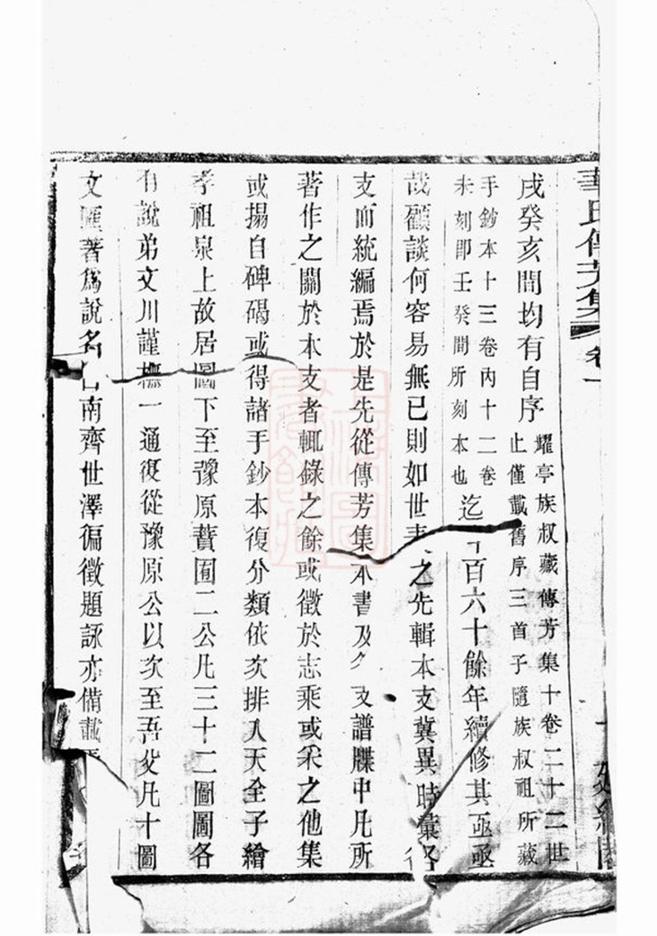 華氏傳芳集 卷一
戌癸亥間均有自序
耀亭族叔藏傳芳集十卷二十二世
止僅載舊序三首子隨族叔祖所藏
手鈔本十三卷內十二卷
未刻即壬癸間所刻本也
迄 百六十餘年續修其亟亟
哉顧談何容易無已則如世 之先輯本支冀異時彙各
支而統編焉於是先從傳芳集本書及 支譜牒中凡所
著作之關於本支者輒錄之餘或徵於志乘或采之他集
或搨自碑碣或得諸手鈔本復分類依次排入天全子繪
孝祖泉上故居圖下至豫原薲囿二公凡三十二圖圖各
有說弟文川謹橅一通復從豫原公以次至吾父凡十圖
文匯著爲說名 南齊世澤徧徵題詠亦備載